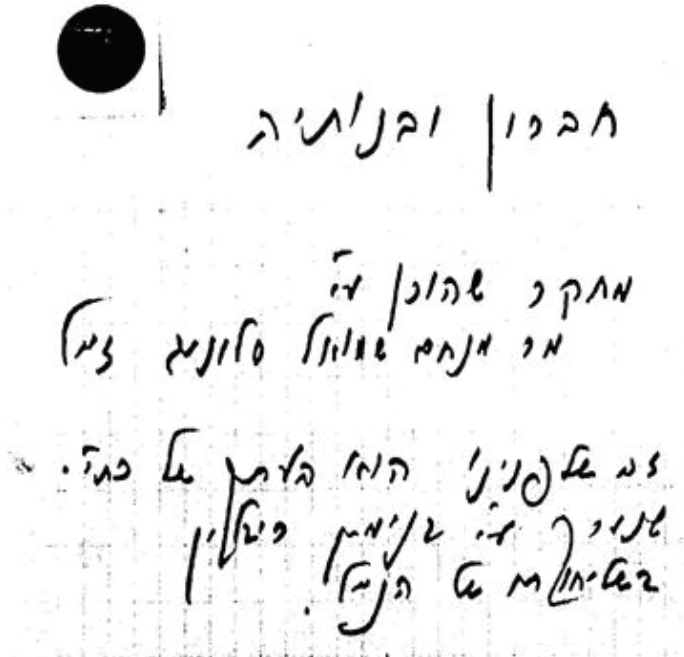 חברון ובנותיה
מחקר שהוכן ע"י
מר מנחם שמואל סלונים ז"ל
זה שלפנינו הוא העתק של כתה"י
שנערך ע"י בנימין ריבלין
בשליחותם של הנ"ל.